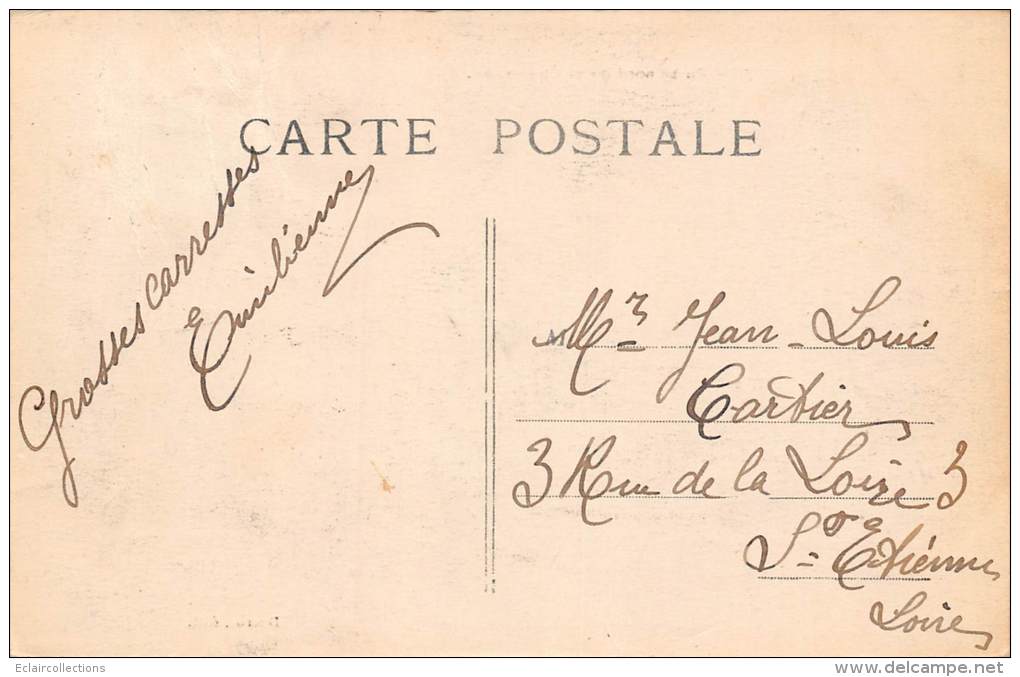 CARTE POSTALE
Grosses carresses
Emilienne
Mr Jean-Louis
Cartier
3 Rue de la Loire 3
St Etienne
Loire
Eclaircollections
www.delcampe.net